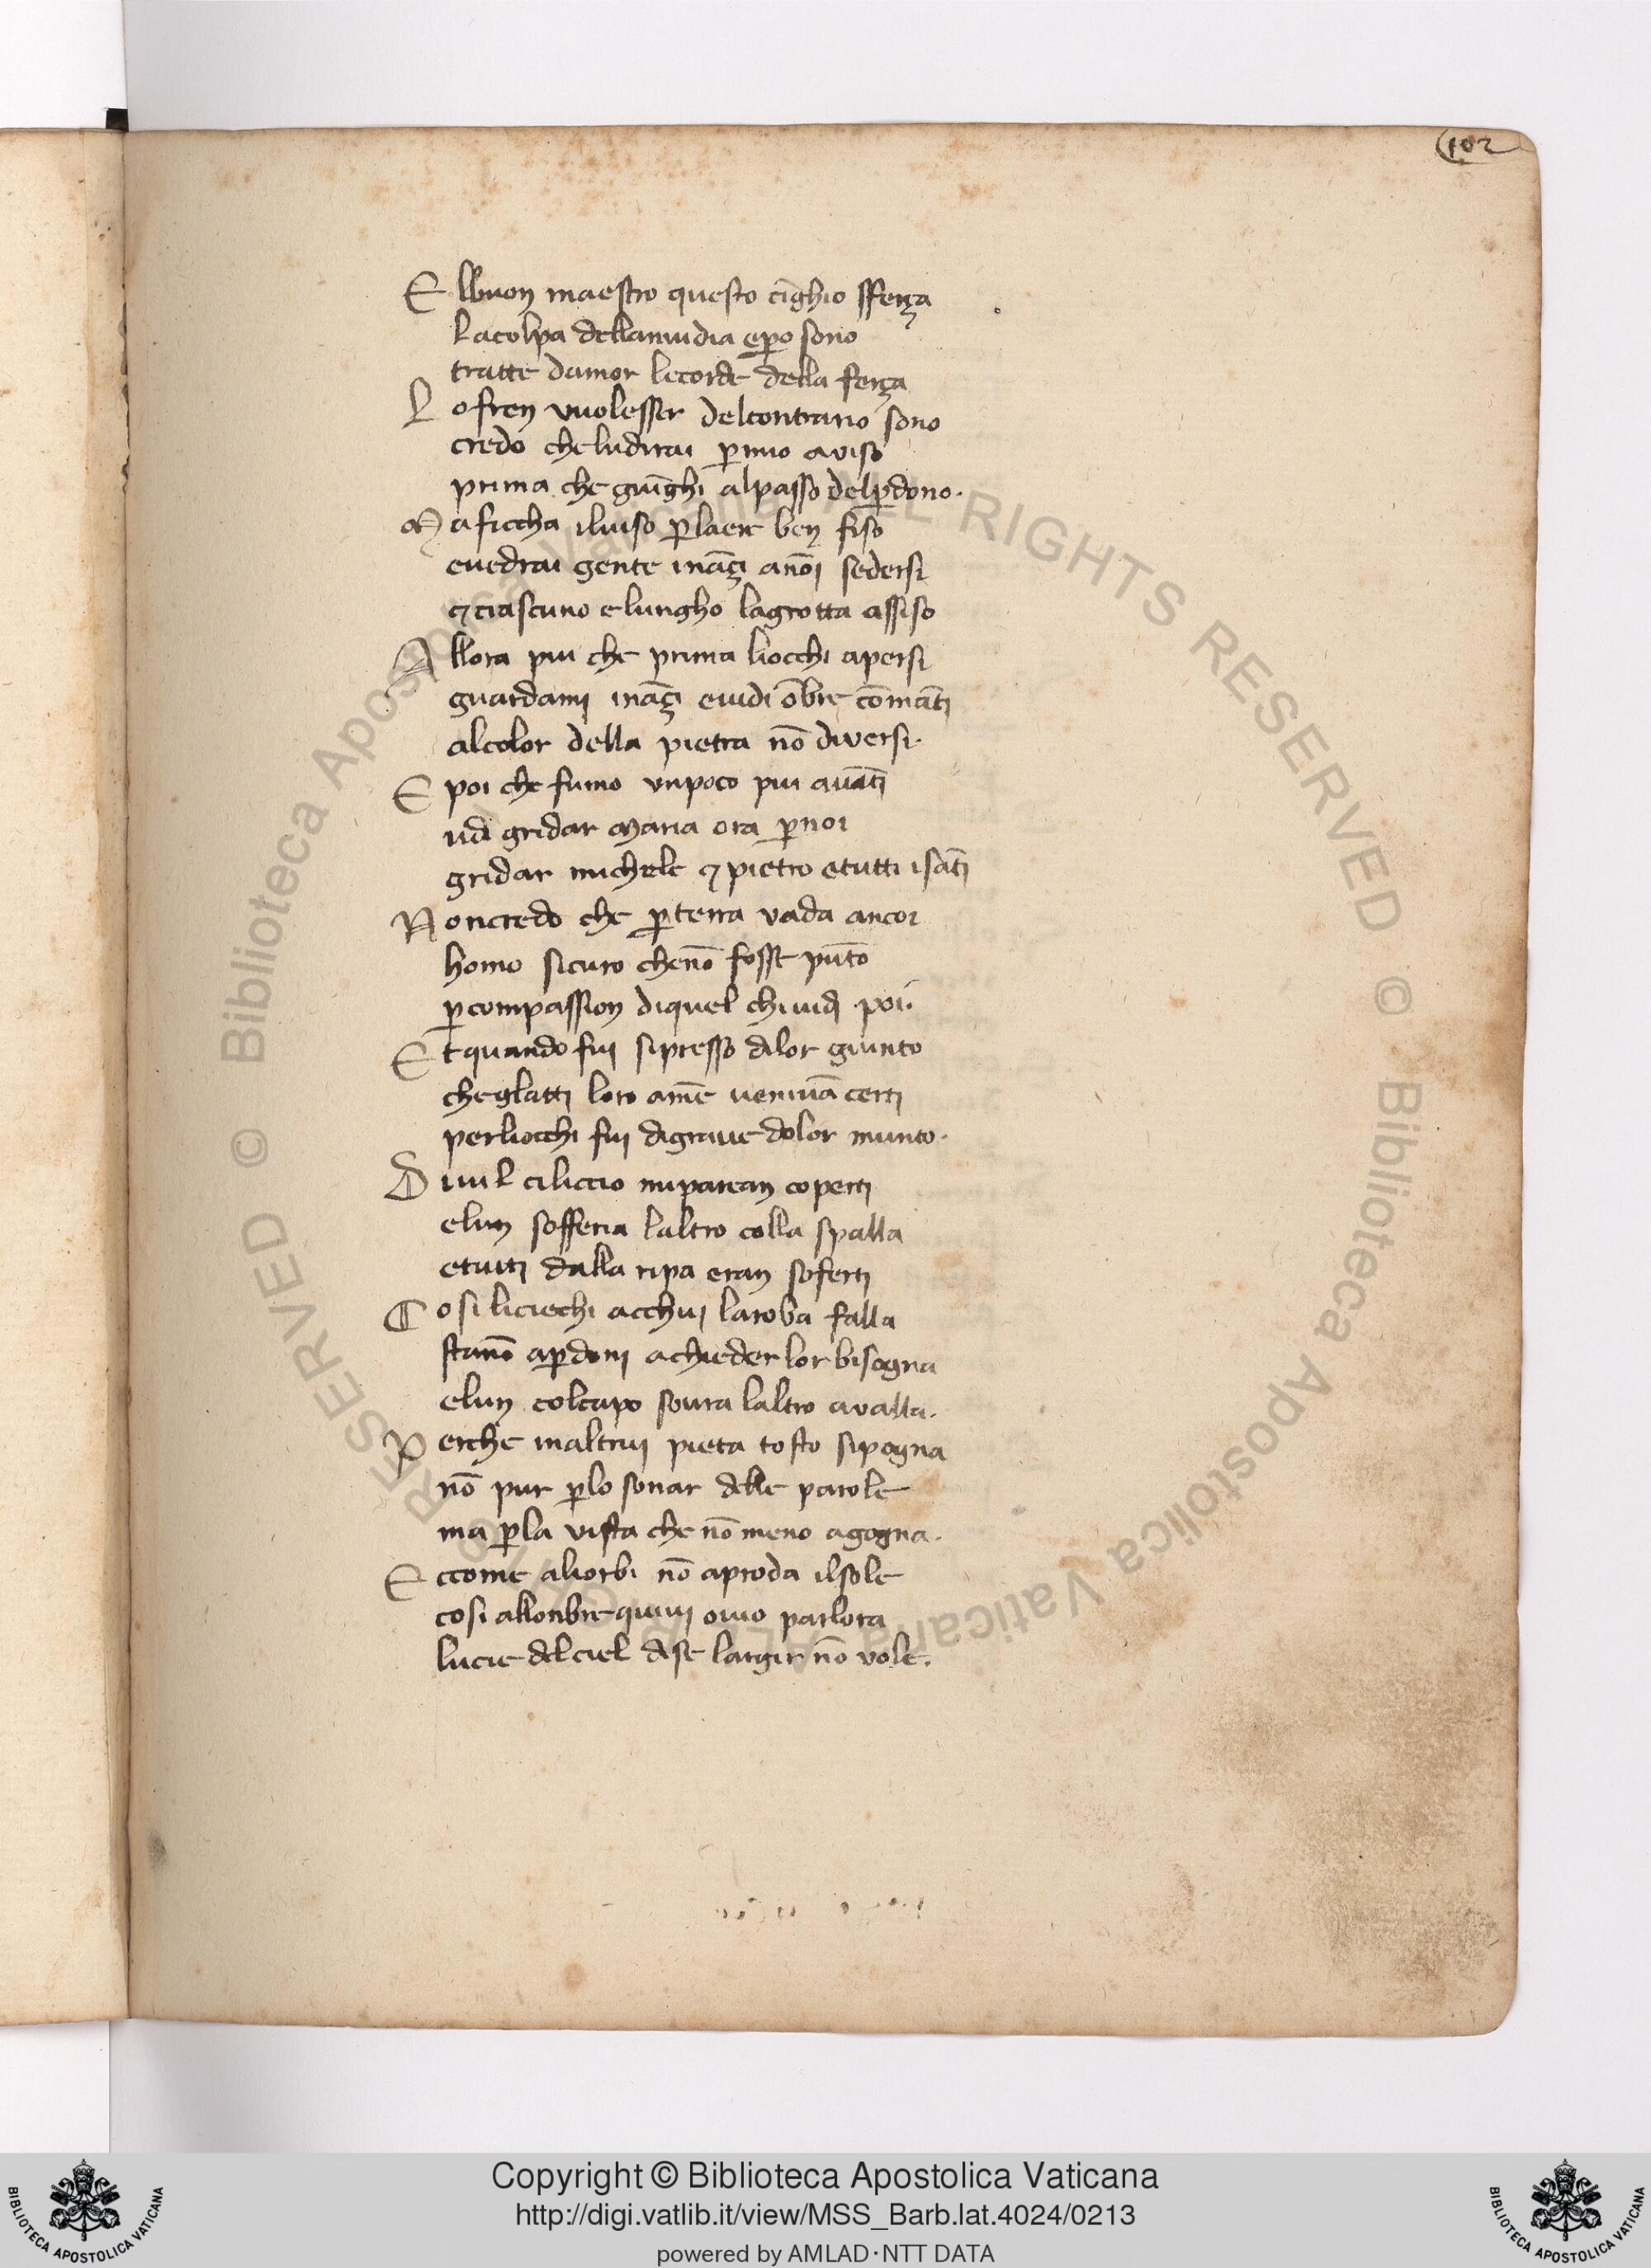 102
E lbuon maestro questo cīghio sferça
La colpa dellamuidia epero sono
tratte damor lecorde della ferça
L ofren vuolesser delcontrario sono
credo cheludirai p̱ mio aviso
prima che giūghi alpasso delp̱dono.
M aficcha iluiso p̱laere ben fiso
euedrai gente ināçi anōi sedersi
⁊ ciascuno elungho lagrotta assiso
A llora piu che prima liocchi apersi
guardami ināçi euidi ōbre cōmāti
alcolor della pietra nō diversi.
E poi che fumo vnpoco piu auāti
udi gridar Maria ora p̱noi
gridar michele ⁊ pietro etutti isāti
N oncredo che p̱terra vada ancoi
homo sicuro chenō fosse pūto
p̱compassion diquel chiuidi poi.
E tquando fui sipresso dilor giunto
cheglatti loro amē veniuā certi
perliocchi fui digraue dolor munto.
D iuil ciliccio miparean coperti
elun sofferia laltro colla spalla
etutti dalla ripa eran soferti
C osi liciechi acchui laroba falla
stanō ap̱doni achieder lor bisogna
elun colcapo soura laltro avalla.
P erche inaltrui pieta tosto sipogna
nō pur p̱lo sonar delle parole
ma p̱la vista che nō meno agogna.
E ccome aliorbi nō aproda ilsole
cosi allonbre quiui ouio parlora
lucie delciel dise largir nō vole.
© Biblioteca Apostolica Vaticana ALL RIGHTS RESERVED © Biblioteca Apostolica Vaticana ALL RIGHTS RESERVED
Copyright © Biblioteca Apostolica Vaticana
http://digi.vatlib.it/view/MSS_Barb.lat.4024/0213
powered by AMLAD·NTT DATA
BIBLIOTECA APOSTOLICA VATICANA
BIBLIOTECA APOSTOLICA VATICANA